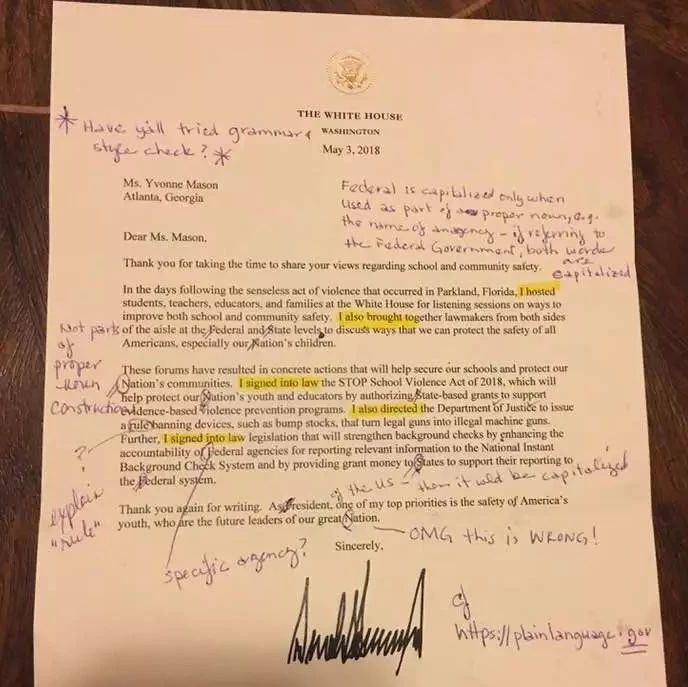 THE WHITE HOUSE
WASHINGTON
May 3, 2018
* Have yall tried grammar &
style check? *
Ms. Yvonne Mason
Atlanta, Georgia
Federal is capitalized only when
used as part of a proper noun, e.g.
the name of an agency - if referring to
the Federal Government, both words
are
capitalized
Dear Ms. Mason,
Thank you for taking the time to share your views regarding school and community safety.
In the days following the senseless act of violence that occurred in Parkland, Florida, I hosted
students, teachers, educators, and families at the White House for listening sessions on ways to
improve both school and community safety. I also brought together lawmakers from both sides
of the aisle at the Federal and State levels to discuss ways that we can protect the safety of all
Americans, especially our Nation's children.
Not part
of
proper
noun
construction
These forums have resulted in concrete actions that will help secure our schools and protect our
Nation's communities. I signed into law the STOP School Violence Act of 2018, which will
help protect our Nation's youth and educators by authorizing State-based grants to support
evidence-based violence prevention programs. I also directed the Department of Justice to issue
a rule banning devices, such as bump stocks, that turn legal guns into illegal machine guns.
Further, I signed into law legislation that will strengthen background checks by enhancing the
accountability of Federal agencies for reporting relevant information to the National Instant
Background Check System and by providing grant money to States to support their reporting to
the Federal system.
?
explain
"rule"
of the US - then it would be capitalized
Thank you again for writing. As President, one of my top priorities is the safety of America's
youth, who are the future leaders of our great Nation.
OMG this is WRONG!
Sincerely,
specific agency?
cf
https://plainlanguage.gov